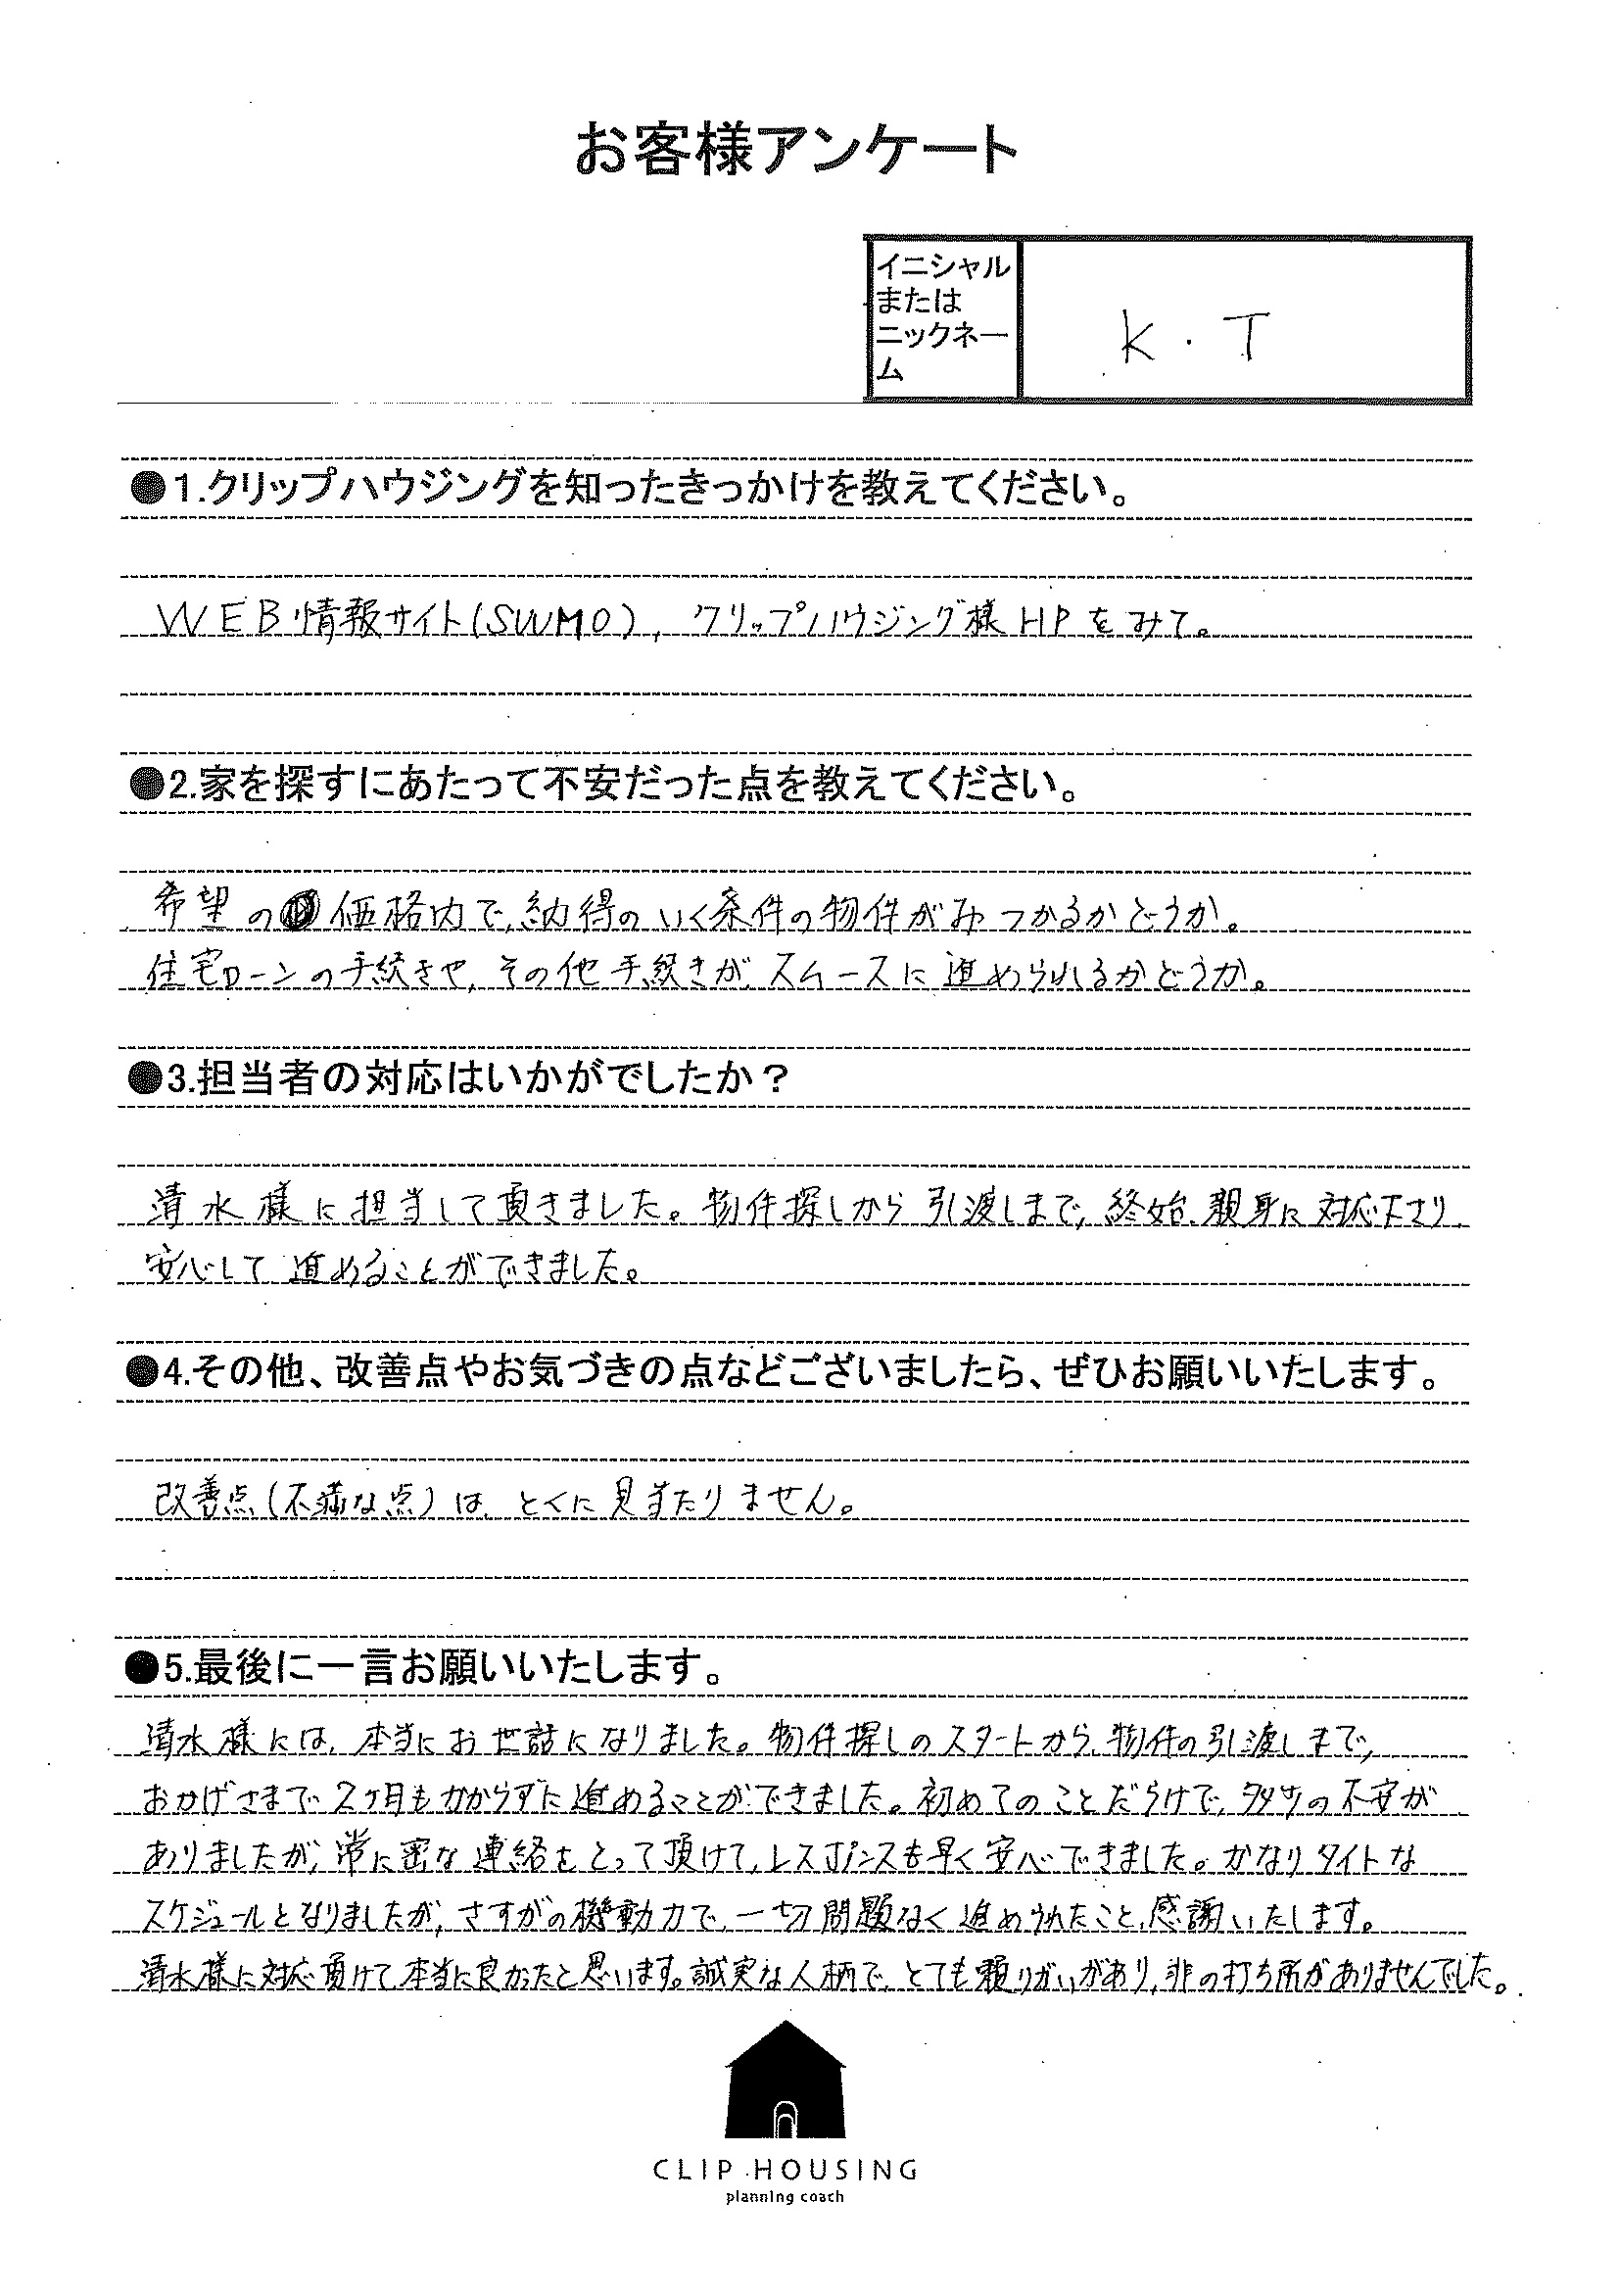 お客様アンケート
イニシャル
または
ニックネー
ム
K・T
●1.クリップハウジングを知ったきっかけを教えてください。
WEB情報サイト(SUUMO)、クリップハウジング様HPをみて。
●2.家を探すにあたって不安だった点を教えてください。
希望の価格内で、納得のいく条件の物件がみつかるかどうか。
住宅ローンの手続きや、その他手続きが、スムースに進められるかどうか。
●3.担当者の対応はいかがでしたか？
清水様に担当して頂きました。物件探しから引渡しまで、終始、親身に対応下さり、
安心して進めることができました。
●4.その他、改善点やお気づきの点などございましたら、ぜひお願いいたします。
改善点(不満な点)は、とくに見当たりません。
●5.最後に一言お願いいたします。
清水様には、本当にお世話になりました。物件探しのスタートから、物件の引渡しまで、
おかげさまで2ヶ月もかからずに進めることができました。初めてのことだらけで、多少の不安が
ありましたが、常に密な連絡をとって頂けて、レスポンスも早く安心できました。かなりタイトな
スケジュールとなりましたが、さすがの機動力で、一切問題なく進められたこと、感謝いたします。
清水様に対応頂けて、本当に良かったと思います。誠実な人柄で、とても頼りがいがあり、非の打ち所がありませんでした。
CLIP HOUSING
planning coach